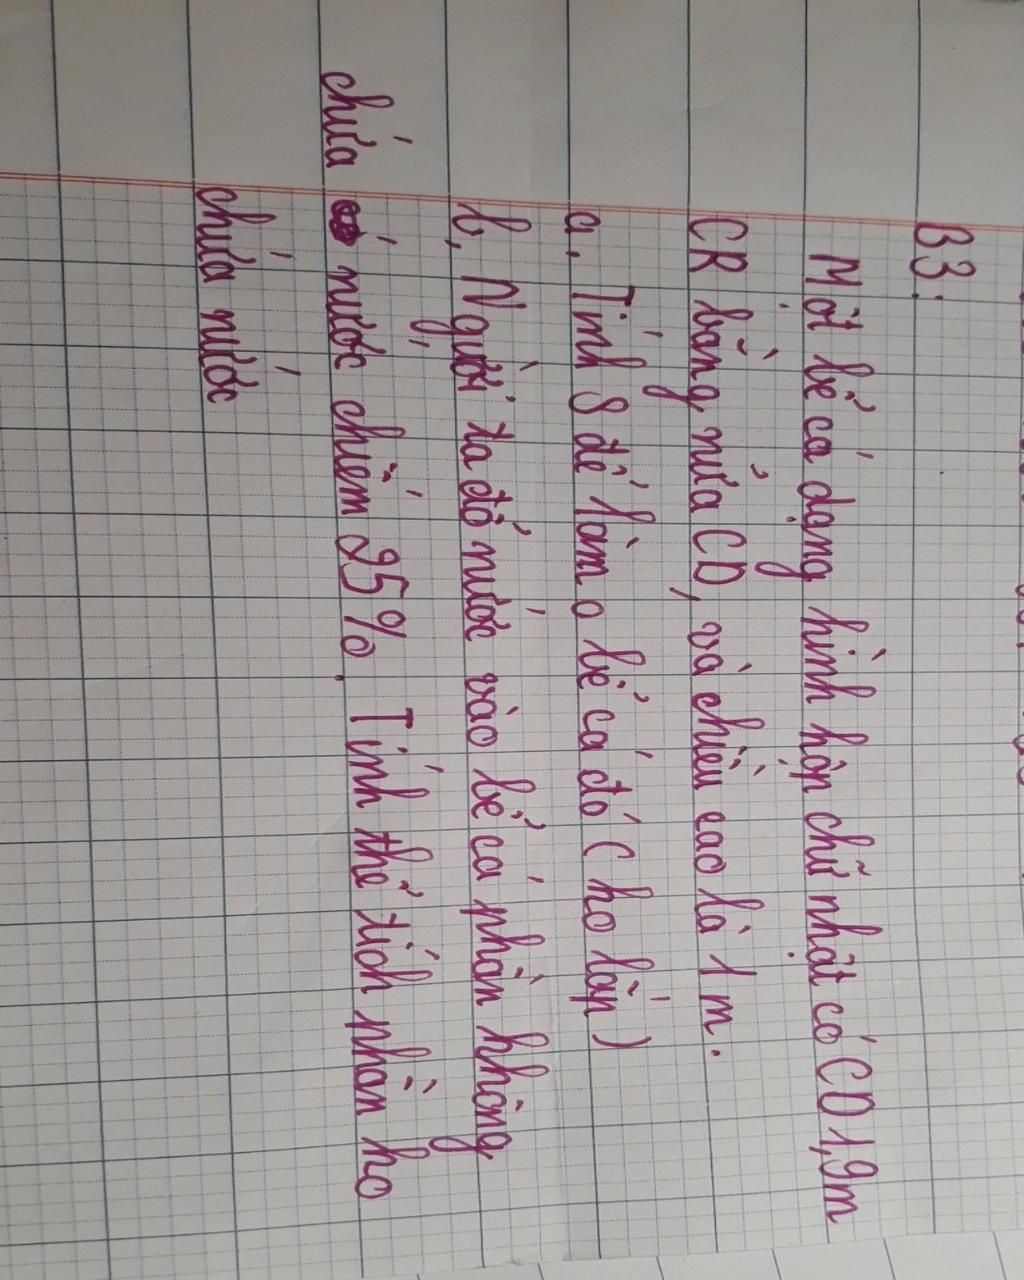 B3:
Một bể cá dạng hình hộp chữ nhật có CD 1,9m
CR bằng nửa CD, và chiều cao là 1 m.
a. Tính S để làm o bể cá đó (ko lắp)
b, Người ta đổ nước vào bể cá phần không
chứa nước chiếm 95%. Tính thể tích phần ko
chứa nước